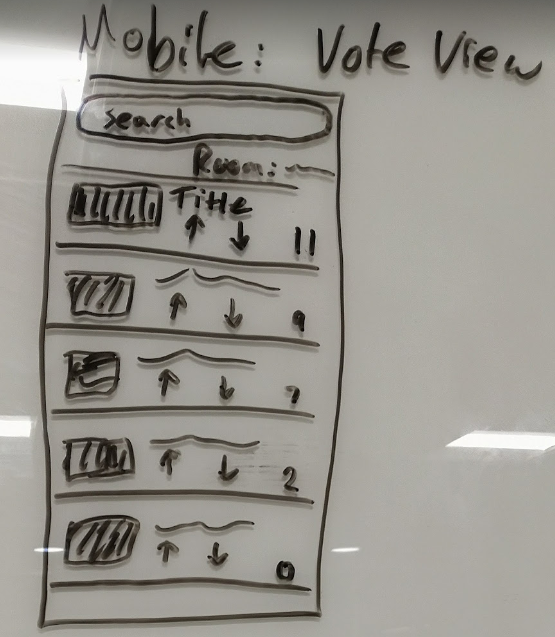 Mobile: Vote View
search
Room:
Title
↑ ↓ 11
↑ ↓ 9
↑ ↓ 7
↑ ↓ 2
↑ ↓ 0